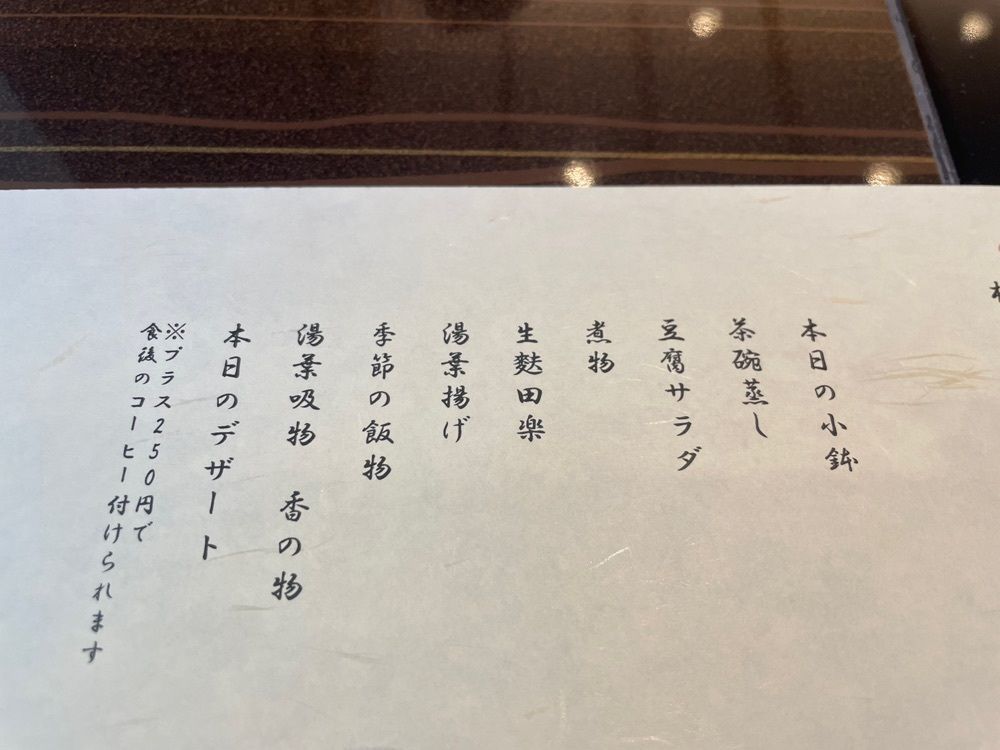 本日の小鉢
茶碗蒸し
豆腐サラダ
煮物
生麩田楽
湯葉揚げ
季節の飯物
湯葉吸物　香の物
本日のデザート
※プラス250円で
食後のコーヒー付けられます